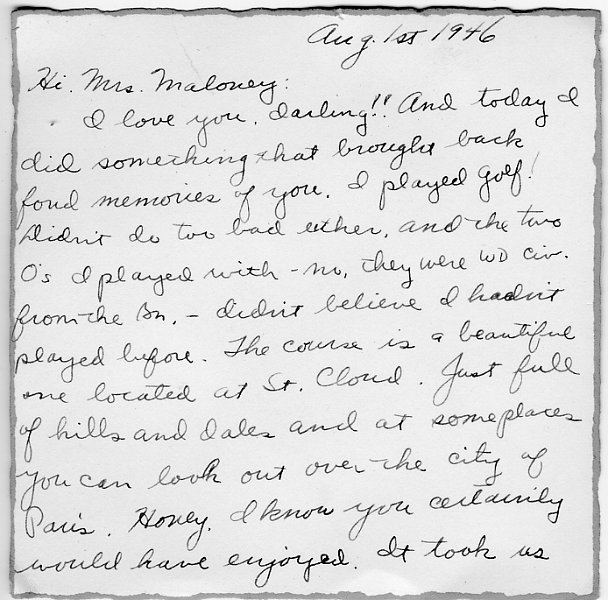 Aug. 1st 1946
Hi. Mrs. Maloney:
I love you, darling!! And today I
did something that brought back
fond memories of you. I played golf!
Didn't do too bad either, and the two
O's I played with - no, they were WD civ.
from the Bn. - didn't believe I hadn't
played before. The course is a beautiful
one located at St. Cloud. Just full
of hills and dales and at some places
you can look out over the city of
Paris. Honey, I know you certainly
would have enjoyed. It took us